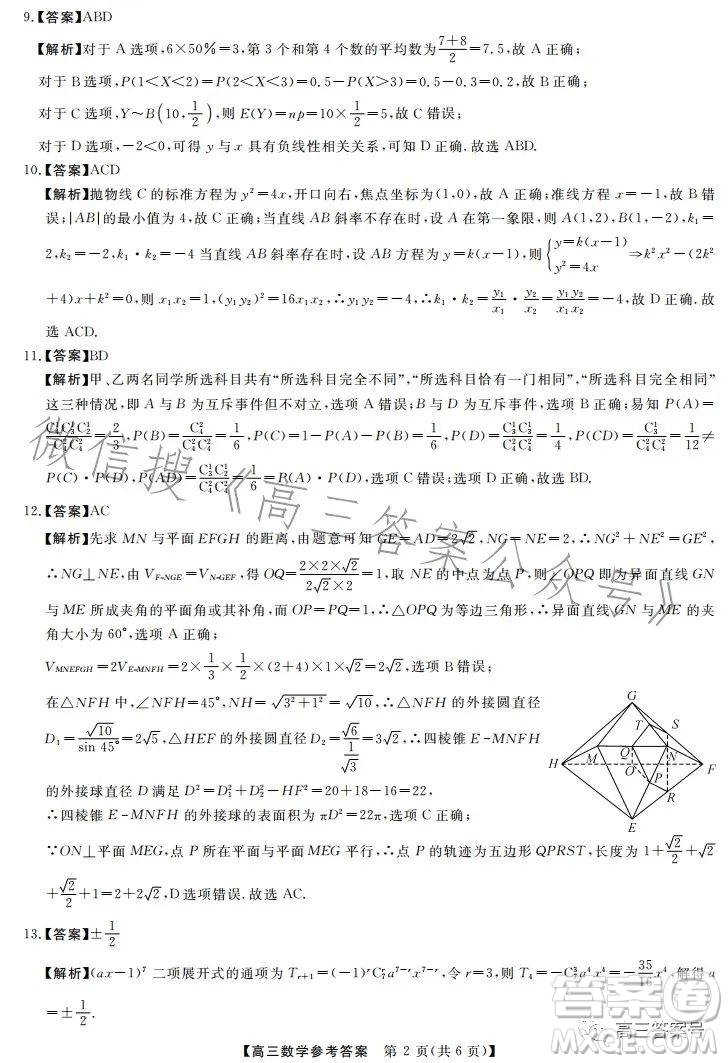 9.【答案】ABD
【解析】对于 A 选项,6×50%=3,第 3 个和第 4 个数的平均数为(7+8)/2=7.5,故 A 正确;
对于 B 选项,P(1<X<2)=P(2<X<3)=0.5-P(X>3)=0.5-0.3=0.2,故 B 正确;
对于 C 选项,Y~B(10,1/2),则 E(Y)=np=10×1/2=5,故 C 错误;
对于 D 选项,-2<0,可得 y 与 x 具有负线性相关关系,可知 D 正确.故选 ABD.
10.【答案】ACD
【解析】抛物线 C 的标准方程为 y²=4x,开口向右,焦点坐标为(1,0),故 A 正确;准线方程 x=-1,故 B 错
误;|AB|的最小值为 4,故 C 正确;当直线 AB 斜率不存在时,设 A 在第一象限,则 A(1,2),B(1,-2),k₁=
2,k₂=-2,k₁·k₂=-4 当直线 AB 斜率存在时,设 AB 方程为 y=k(x-1),则{y=k(x-1) y²=4x⇒k²x²-(2k²
+4)x+k²=0,则 x₁x₂=1,(y₁y₂)²=16x₁x₂,∴y₁y₂=-4,∴k₁·k₂=y₁/x₁·y₂/x₂=y₁y₂/x₁x₂=-4,故 D 正确.故
选 ACD.
11.【答案】BD
【解析】甲、乙两名同学所选科目共有“所选科目完全不同”,“所选科目恰有一门相同”,“所选科目完全相同”
这三种情况,即 A 与 B 为互斥事件但不对立,选项 A 错误;B 与 D 为互斥事件,选项 B 正确;易知 P(A)=
C₄¹C₃¹C₂¹/C₄²C₄²,P(B)=C₄²/C₄²C₄²=1/6,P(C)=1-P(A)-P(B)=1/6,P(D)=C₃¹C₄²/C₄²C₄²,P(CD)=C₃¹/C₄²C₄²=1/12≠
P(C)·P(D),P(AD)=C₃¹C₂¹/C₄²C₄²=1/6=P(A)·P(D),选项 C 错误;选项 D 正确.故选 BD.
12.【答案】AC
【解析】先求 MN 与平面 EFGH 的距离,由题意可知 GE=AD=2√2,NG=NE=2,∴NG²+NE²=GE²,
∴NG⊥NE,由 V_{F-NGE}=V_{N-GEF},得 OQ=(2×2×√2)/(2√2×2)=1,取 NE 的中点为点 P,则∠OPQ 即为异面直线 GN
与 ME 所成夹角的平面角或其补角,而 OP=PQ=1,∴△OPQ 为等边三角形,∴异面直线 GN 与 ME 的夹
角大小为 60°,选项 A 正确;
V_{MNEFGH}=2V_{E-MNFH}=2×1/3×1/2×(2+4)×1×√2=2√2,选项 B 错误;
在△NFH 中,∠NFH=45°,NH=√(3²+1²)=√10,∴△NFH 的外接圆直径
D₁=√10/sin 45°=2√5,△HEF 的外接圆直径 D₂=√6/(1/√3)=3√2,∴四棱锥 E-MNFH
的外接球直径 D 满足 D²=D₁²+D₂²-HF²=20+18-16=22,
∴四棱锥 E-MNFH 的外接球的表面积为 πD²=22π,选项 C 正确;
∵ON⊥平面 MEG,点 P 所在平面与 MEG 平行,∴点 P 的轨迹为五边形 QPRST,长度为 1+√2/2+√2
+√2/2+1=2+2√2,D 选项错误.故选 AC.
G
T
S
H
M
Q
N
F
O
P
R
E
13.【答案】±1/2
【解析】(ax-1)⁷ 二项展开式的通项为 T_{r+1}=(-1)^r C₇^r a^{7-r} x^{7-r},令 r=3,则 T₄=-C₇³a⁴x⁴=-35/16x⁴,解得 a
=±1/2.
【高三数学参考答案 第 2 页(共 6 页)】
微信搜《高三答案公众号》
答案圈
高三答案号